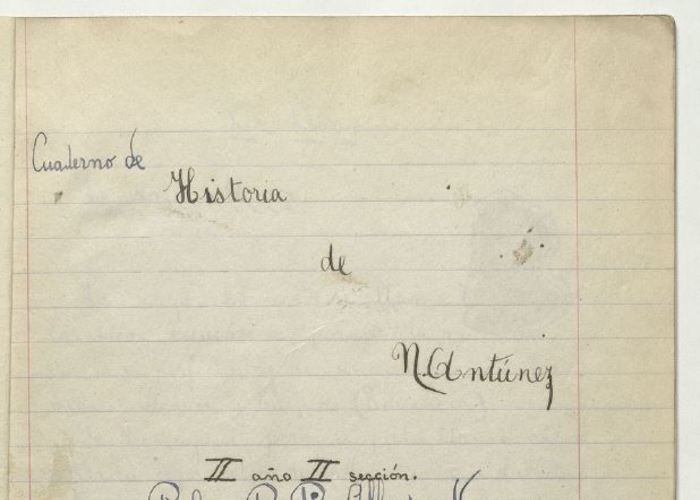 Cuaderno de
Historia
de
N. Antúnez
II año II sección.